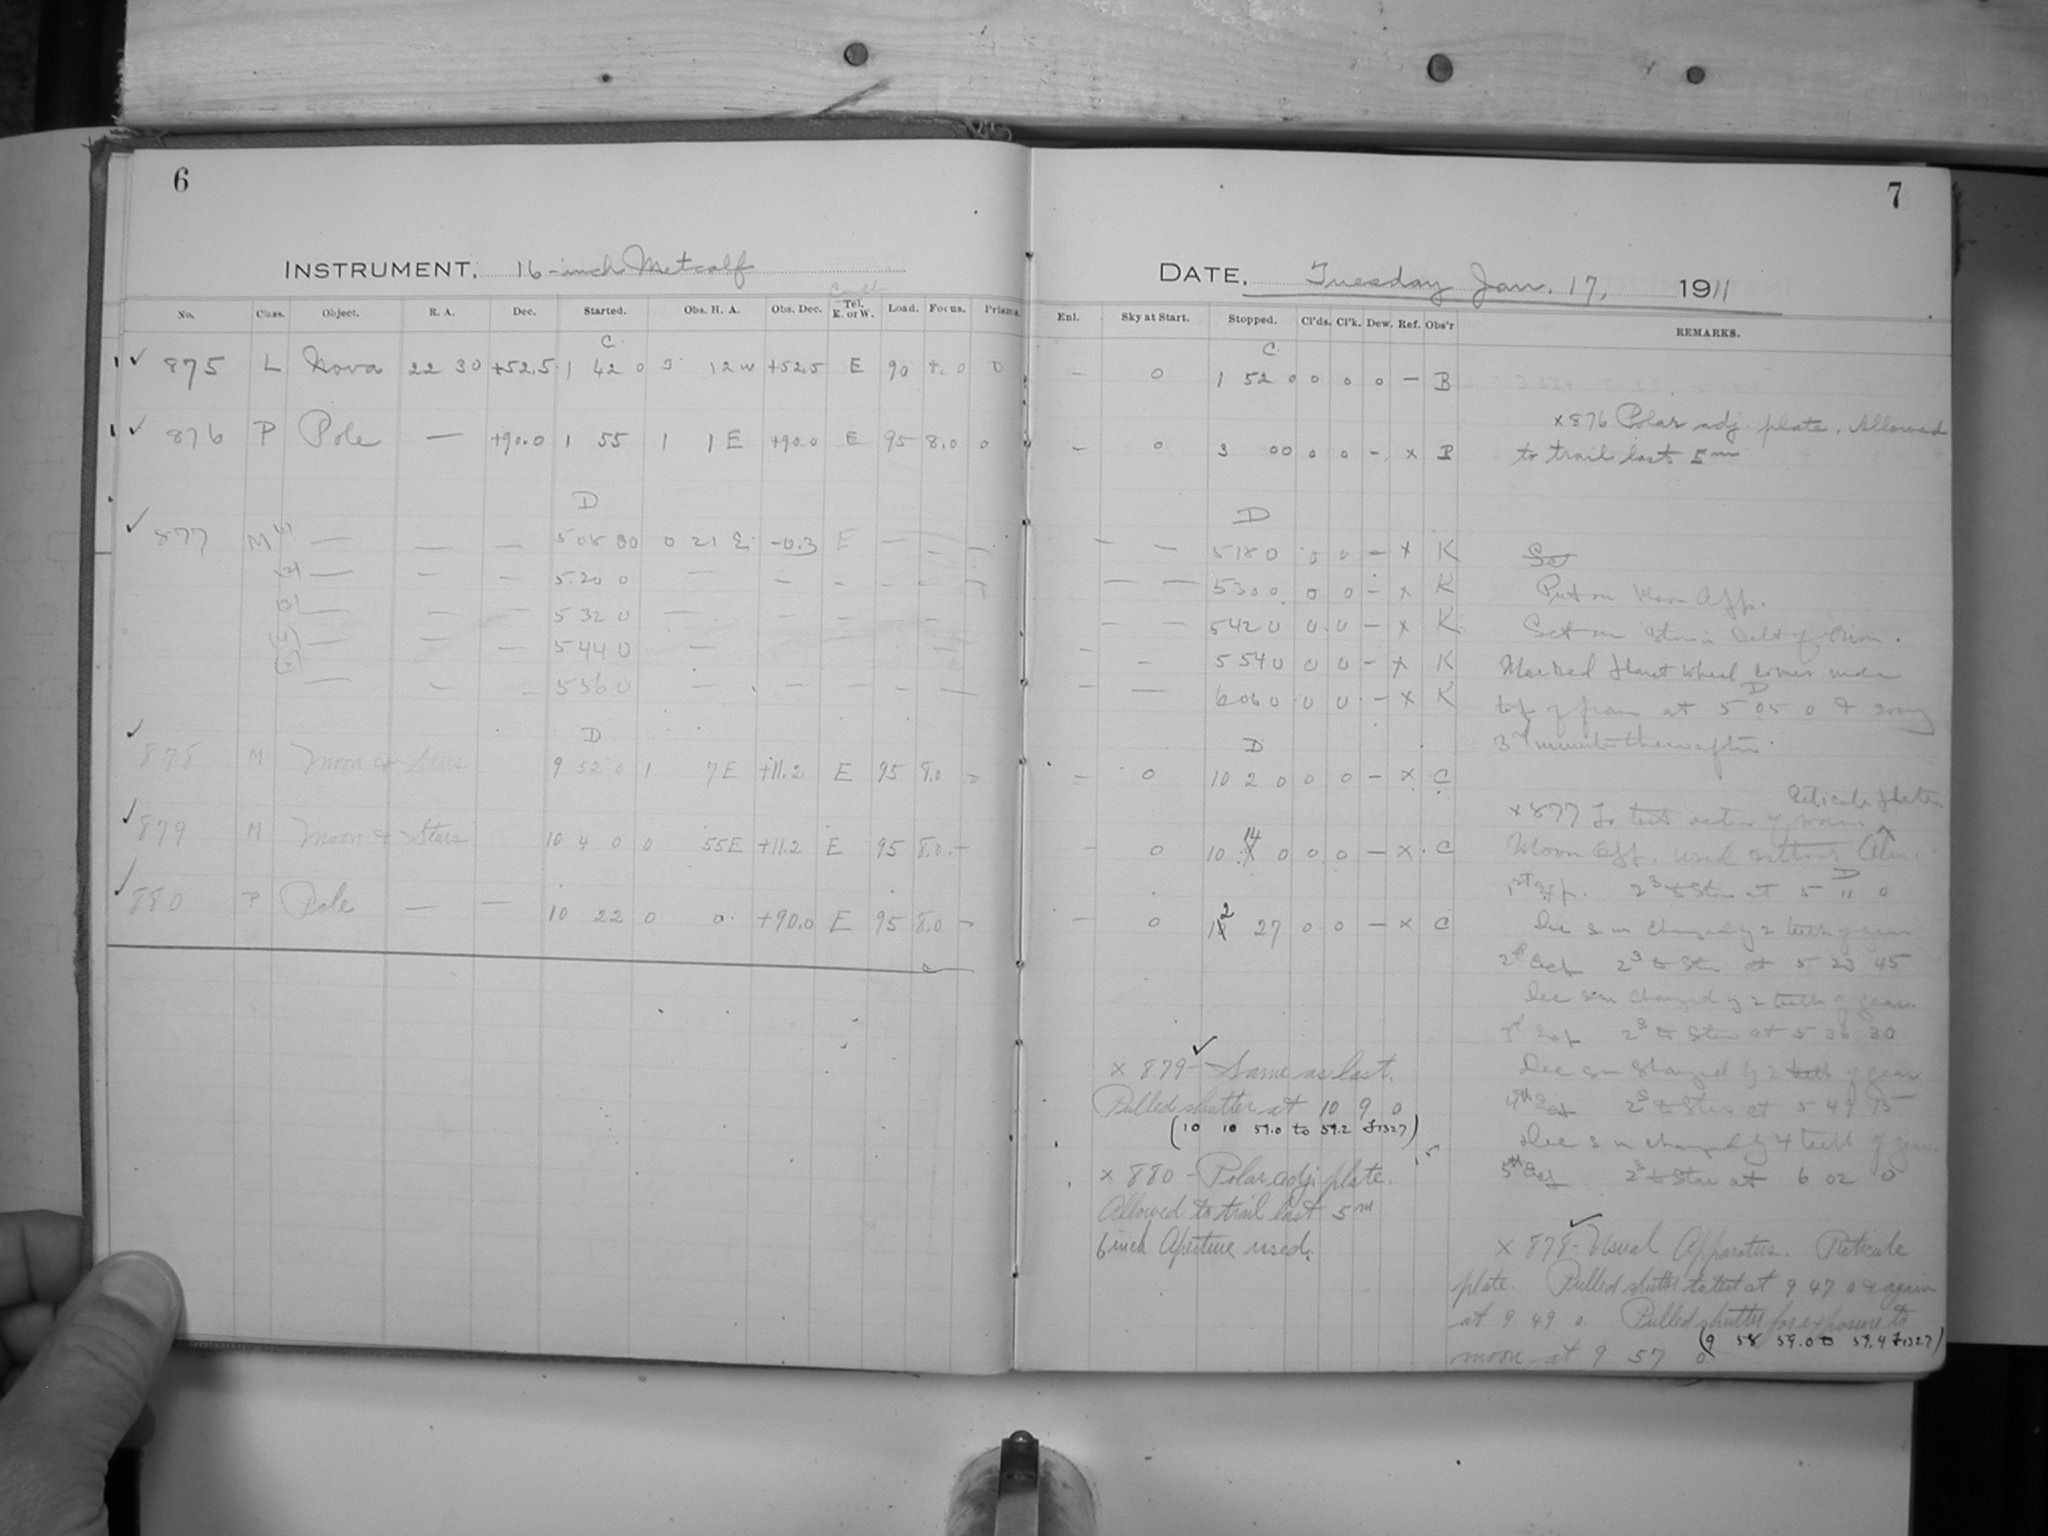 6
INSTRUMENT. 16-inch Metcalf
No. Class. Object. R. A. Dec. Started. Obs. H. A. Obs. Dec. Tel. E. or W. Load. Focus. Prisms.
C
✓ 875 L Nova 22 30 +52.5 1 42 0 5 12 W +52.5 E 90 8.0 0
✓ 876 P Pole — +90.0 1 55 1 1 E +90.0 E 95 8.0 0
D
✓ 877 M — — — 0 21 E -0.3 E — — —
— — — 5 20 0 — — — — — —
— — — 5 32 0 —
— — — 5 44 0 — —
— — — 5 56 0 — — — — — —
D
✓ 878 M Moon & Stars 9 52 0 1 7 E +11.2 E 95 8.0 —
✓ 879 M Moon & Stars 10 4 0 0 55 E +11.2 E 95 8.0 —
✓ 880 P Pole — — 10 22 0 0 +90.0 E 95 8.0 —
7
DATE. Tuesday Jan. 17, 1911
Enl. Sky at Start. Stopped. Cl'ds. Cl'k. Dew. Ref. Obs'r REMARKS.
C
— 0 1 52 0 0 0 0 — B
— 0 3 00 0 0 — x B
D
— — 5 18 0 0 0 — x K
— — 5 30 0 0 0 — x K
— — 5 42 0 0 0 — x K
— — 5 54 0 0 0 — x K
— — 6 06 0 0 0 — x K
D
— 0 10 2 0 0 0 — x C
— 0 10 14 0 0 0 — x C
— 0 12 27 0 0 — x C
x 876 Polar adj. plate. Allowed
to trail last 5m
Put on Moon App.
Set on Star in Belt of Orion.
Marked wheel comes under
D
top of frame at 5 05 0 & every
3rd minute thereafter.
Reticule plate.
x 877 To test action of
Moon App. used
D
1st Exp. 2s to Star at 5 11 0
Dec s m changed by 2 teeth of gear
2d Exp 2s to Star at 5 23 45
Dec s m changed by 2 teeth of gear.
3d Exp 2s to Star at 5 36 30
Dec s m changed by 2 teeth of gear
4th Exp 2s to Star at 5 49 15
Dec s m changed by 4 teeth of gear.
5th Exp 2s to Star at 6 02 0
x 878 - Usual Apparatus. Reticule
plate. Pulled shutter to test at 9 47 0 & again
at 9 49 0. Pulled shutter for exposure to
(9 58 59.0 to 59.4 J1327)
moon at 9 57 0
✓
x 879 - Same as last.
Pulled shutter at 10 9 0
(10 10 59.0 to 59.2 J1327)
x 880 - Polar adj. plate.
Allowed to trail last 5m
6 inch Aperture used.